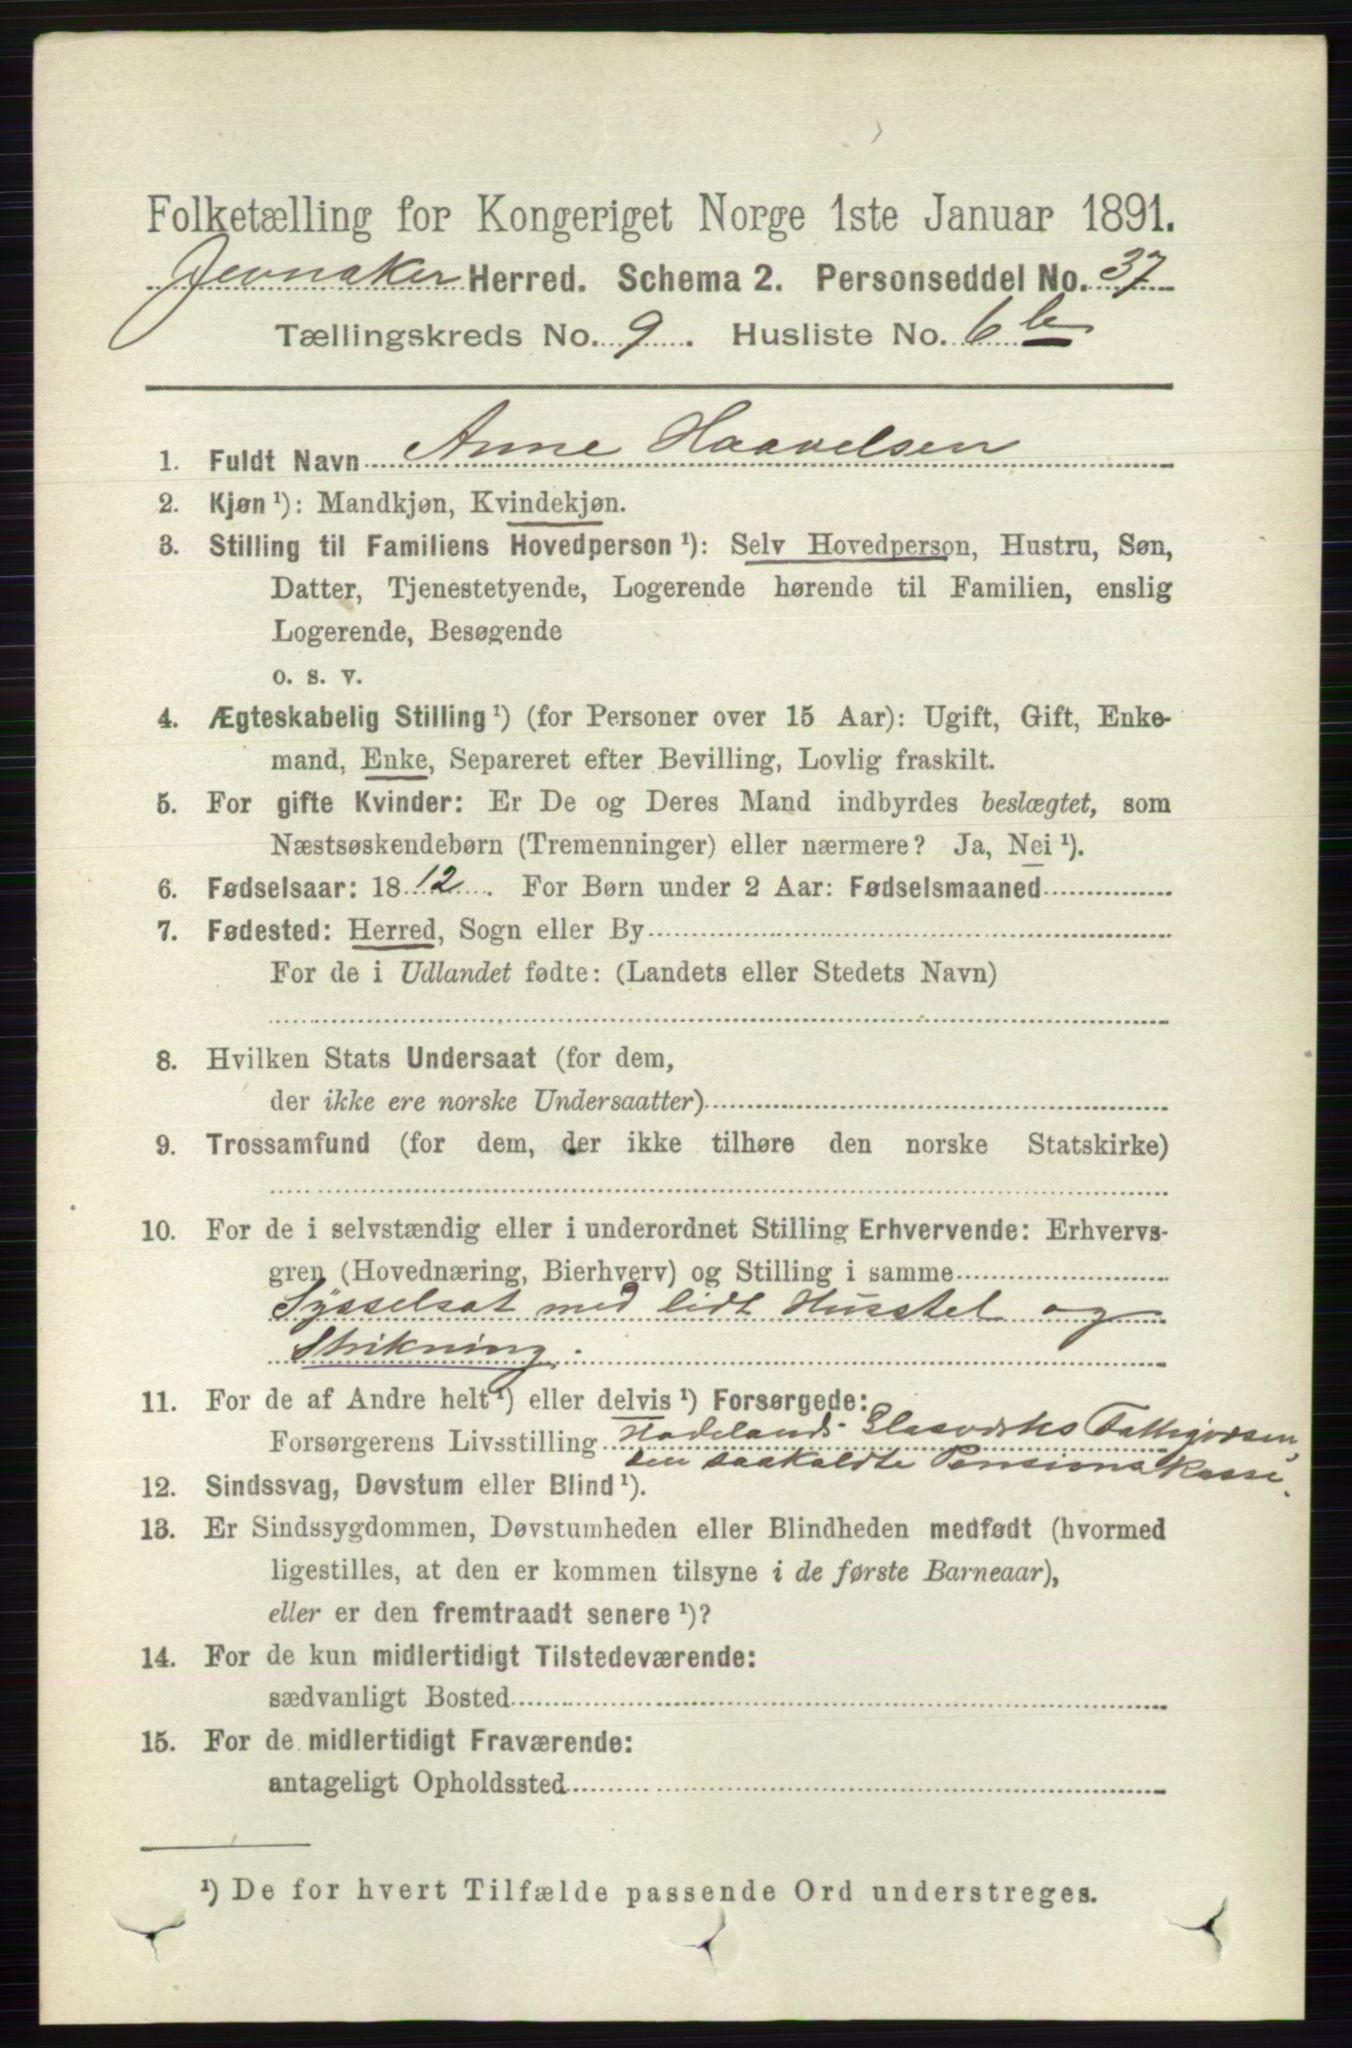 Folketælling for Kongeriget Norge 1ste Januar 1891.
Jevnaker Herred. Schema 2. Personseddel No. 37
Tællingskreds No. 9. Husliste No. 6 b
1. Fuldt Navn Anne Haavelsen
2. Kjøn ¹): Mandkjøn, Kvindekjøn.
3. Stilling til Familiens Hovedperson ¹): Selv Hovedperson, Hustru, Søn,
Datter, Tjenestetyende, Logerende hørende til Familien, enslig
Logerende, Besøgende
o. s. v.
4. Ægteskabelig Stilling ¹) (for Personer over 15 Aar): Ugift, Gift, Enke-
mand, Enke, Separeret efter Bevilling, Lovlig fraskilt.
5. For gifte Kvinder: Er De og Deres Mand indbyrdes beslægtet, som
Næstsøskendebørn (Tremenninger) eller nærmere? Ja, Nei ¹).
6. Fødselsaar: 1812. For Børn under 2 Aar: Fødselsmaaned
7. Fødested: Herred, Sogn eller By
For de i Udlandet fødte: (Landets eller Stedets Navn)
8. Hvilken Stats Undersaat (for dem,
der ikke ere norske Undersaatter)
9. Trossamfund (for dem, der ikke tilhøre den norske Statskirke)
10. For de i selvstændig eller i underordnet Stilling Erhvervende: Erhvervs-
gren (Hovednæring, Bierhverv) og Stilling i samme
Sysselsat med lidt Husstel og
Strikning.
11. For de af Andre helt ¹) eller delvis ¹) Forsørgede:
Forsørgerens Livsstilling Hadelands Glasværks
den saakaldte Pensionskasse.
12. Sindssvag, Døvstum eller Blind ¹).
13. Er Sindssygdommen, Døvstumheden eller Blindheden medfødt (hvormed
ligestilles, at den er kommen tilsyne i de første Barneaar),
eller er den fremtraadt senere ¹)?
14. For de kun midlertidigt Tilstedeværende:
sædvanligt Bosted
15. For de midlertidigt Fraværende:
antageligt Opholdssted
¹) De for hvert Tilfælde passende Ord understreges.